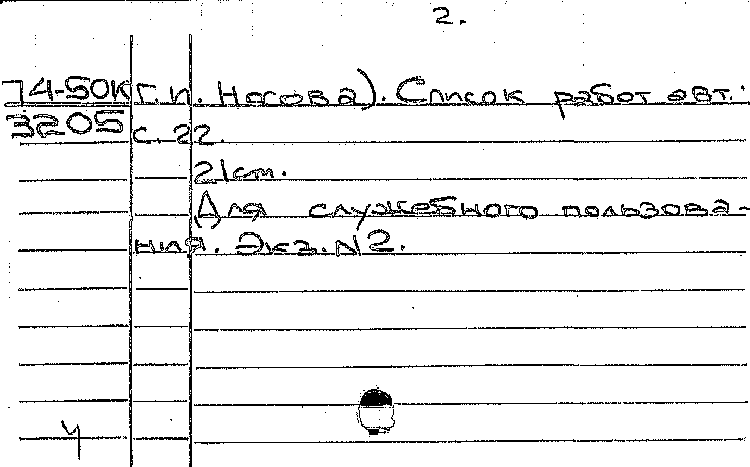 2.
74-50к г.п. Носова). Список работ авт.:
3205 с. 22.
21 см.
Для служебного пользова-
ния. Экз. N2.
ч